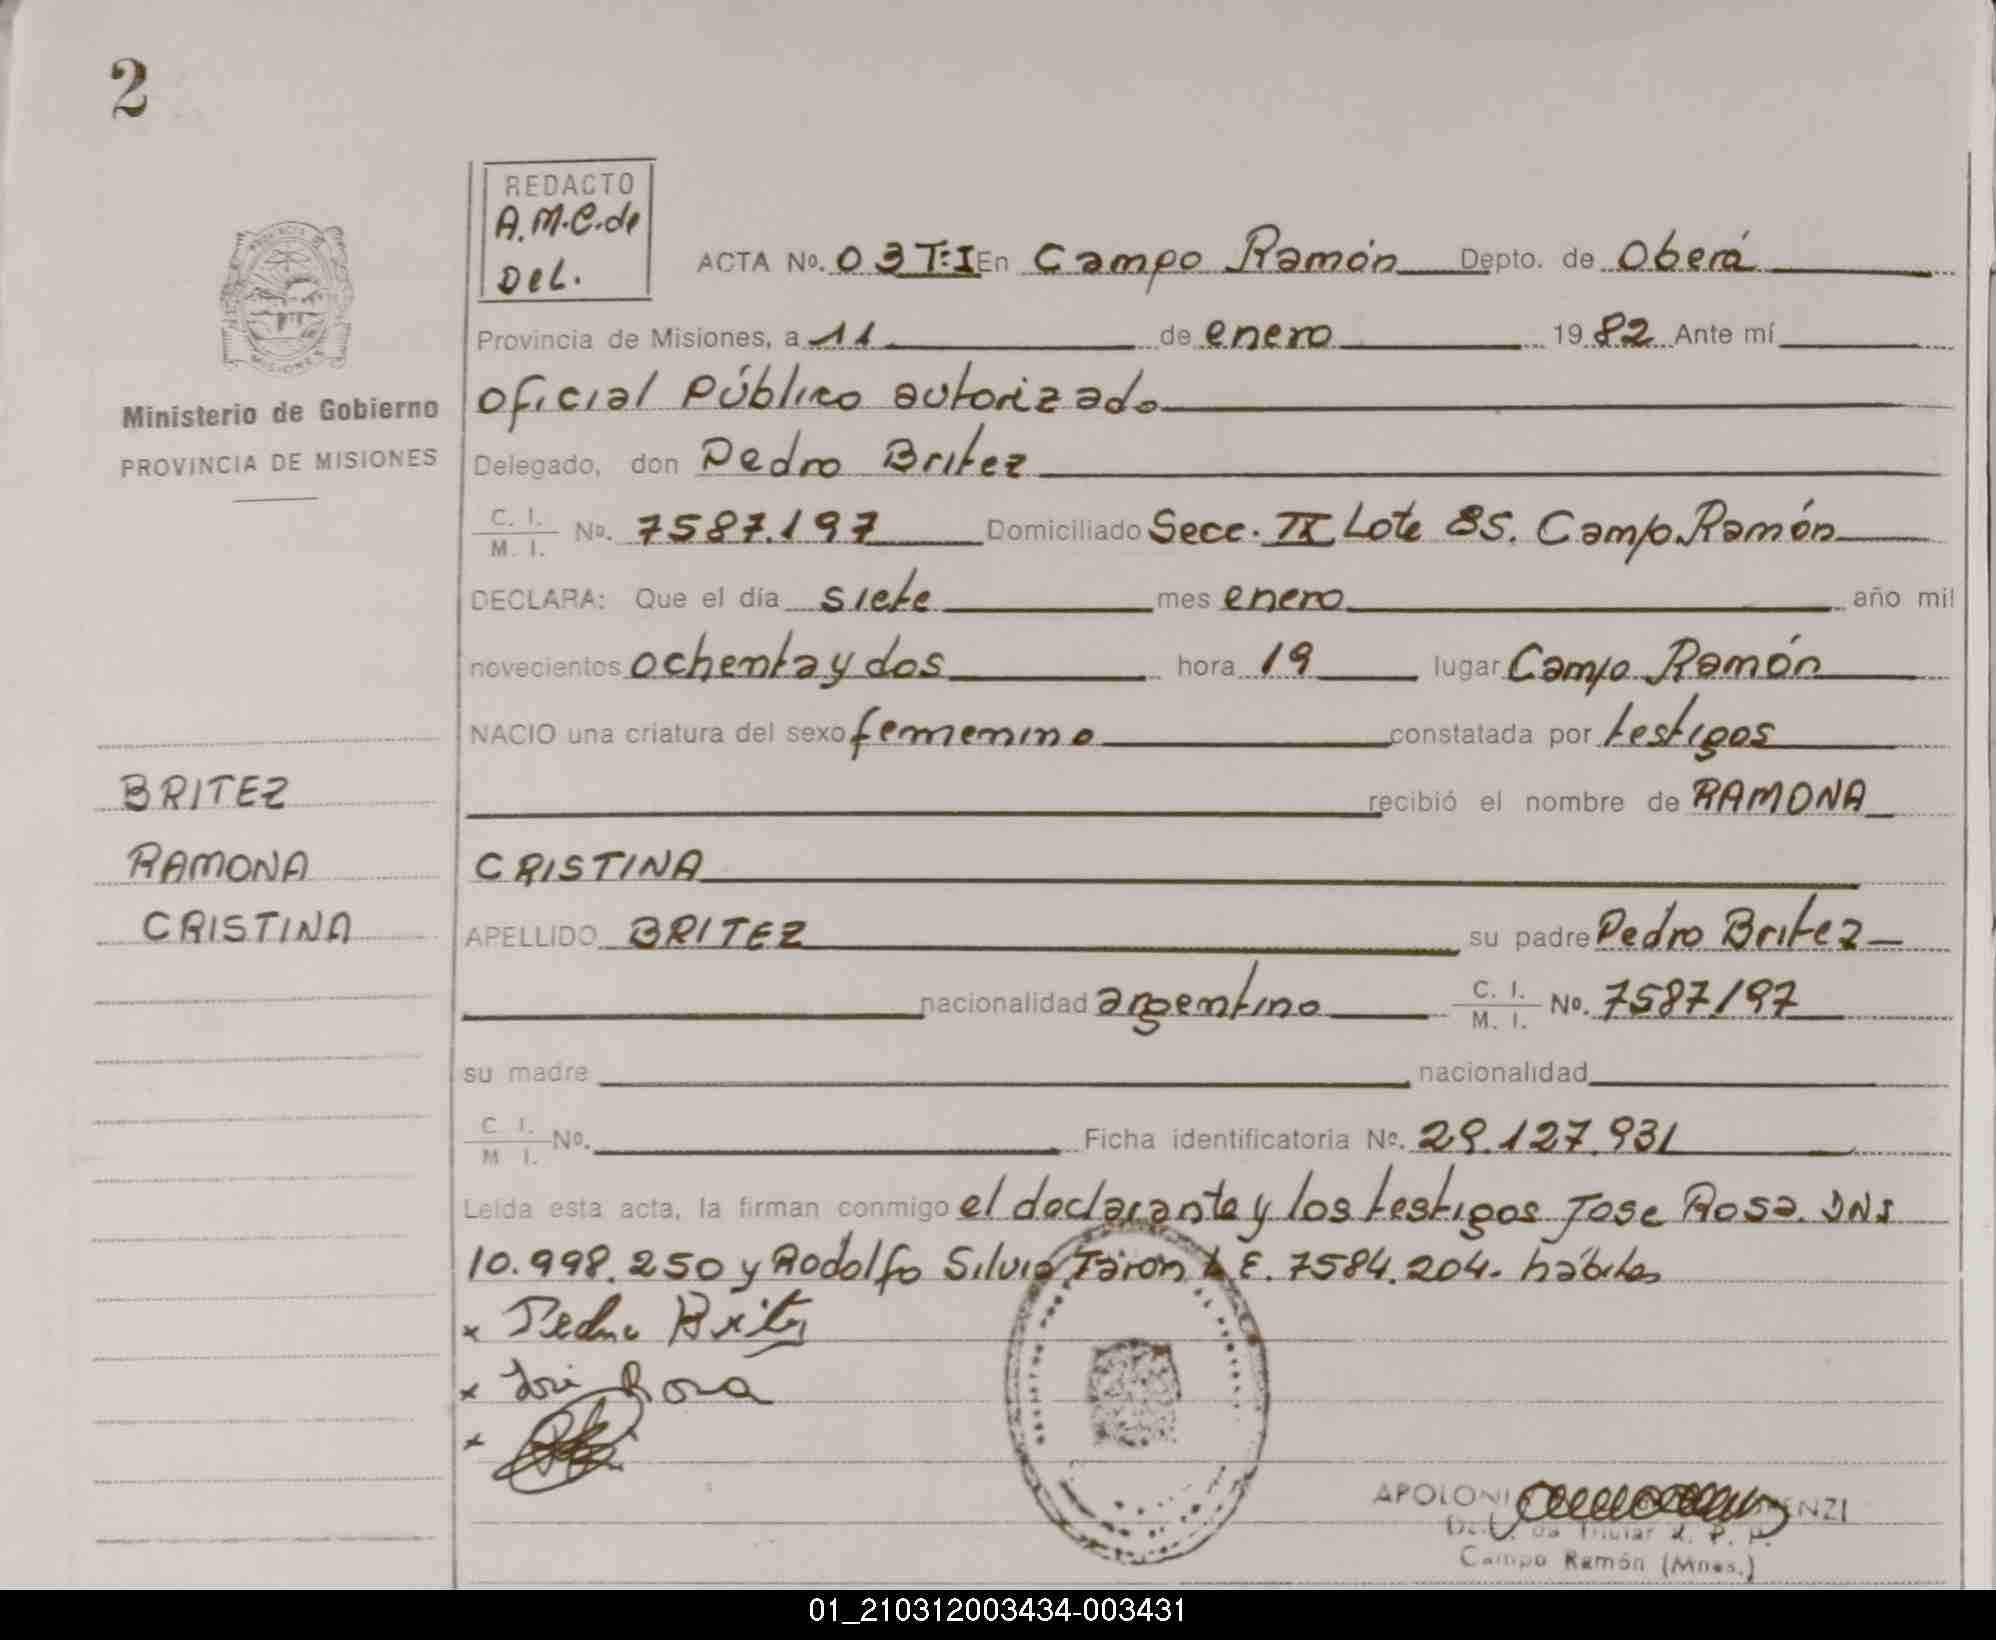 2
REDACTO
A.M.C.de
Del.
ACTA No. 03 T:I En Campo Ramón Depto. de Oberá
Provincia de Misiones, a 11 de enero 1982 Ante mí
Ministerio de Gobierno
PROVINCIA DE MISIONES
oficial Público autorizado
Delegado, don Pedro Britez
C. I.
M. I. No. 7587.197 Domiciliado Secc. IX Lote 85. Campo Ramón
DECLARA: Que el día siete mes enero año mil
novecientos ochenta y dos hora 19 lugar Campo Ramón
NACIO una criatura del sexo femenino constatada por testigos
recibió el nombre de RAMONA
CRISTINA
BRITEZ
RAMONA
CRISTINA
APELLIDO BRITEZ su padre Pedro Britez
nacionalidad argentino C. I.
M. I. No. 7587197
su madre nacionalidad
C. I.
M. I. No. Ficha identificatoria No. 29.127.931
Leída esta acta, la firman conmigo el declarante y los testigos Jose Rosa. DNI
10.998.250 y Rodolfo Silvio Taron L E. 7584.204. hábiles
x Pedro Britez
x José Rosa
x
APOLONI ENZI
Titular R. P. P.
Campo Ramón (Mnes.)
01_210312003434-003431